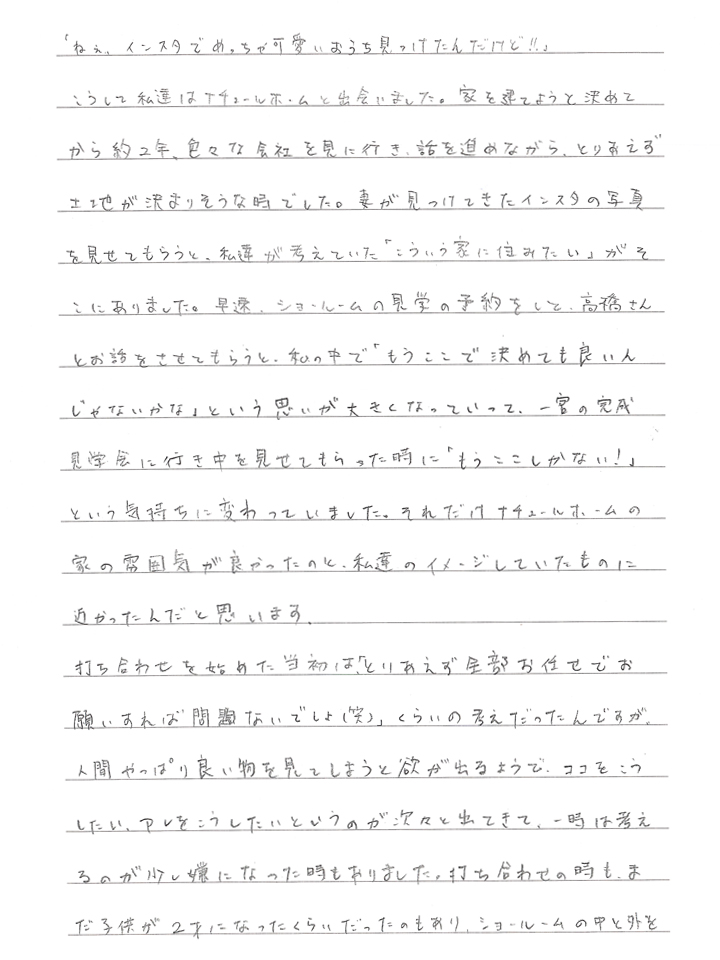 「ねぇ、インスタでめっちゃ可愛いおうち見つけたんだけど!!」
こうして私達はナチュールホームと出会いました。家を建てようと決めて
から約2年、色々な会社を見に行き、話を進めながら、とりあえず
土地が決まりそうな時でした。妻が見つけてきたインスタの写真
を見せてもらうと、私達が考えていた「こういう家に住みたい」がそ
こにありました。早速、ショールームの見学の予約をして、高橋さん
とお話をさせてもらうと、私の中で「もうここで決めても良いん
じゃないかな」という思いが大きくなっていって、一宮の完成
見学会に行き中を見せてもらった時に「もうここしかない!」
という気持ちに変わっていました。それだけナチュールホームの
家の雰囲気が良かったのと、私達のイメージしていたものに
近かったんだと思います。
打ち合わせを始めた当初は、「とりあえず全部お任せでお
願いすれば問題ないでしょ(笑)」くらいの考えだったんですが、
人間やっぱり良い物を見てしまうと欲が出るようで、ココをこう
したい、アレをこうしたいというのが次々と出てきて、一時は考え
るのが少し嫌になった時もありました。打ち合わせの時も、ま
だ子供が2才になったくらいだったのもあり、ショールームの中と外を